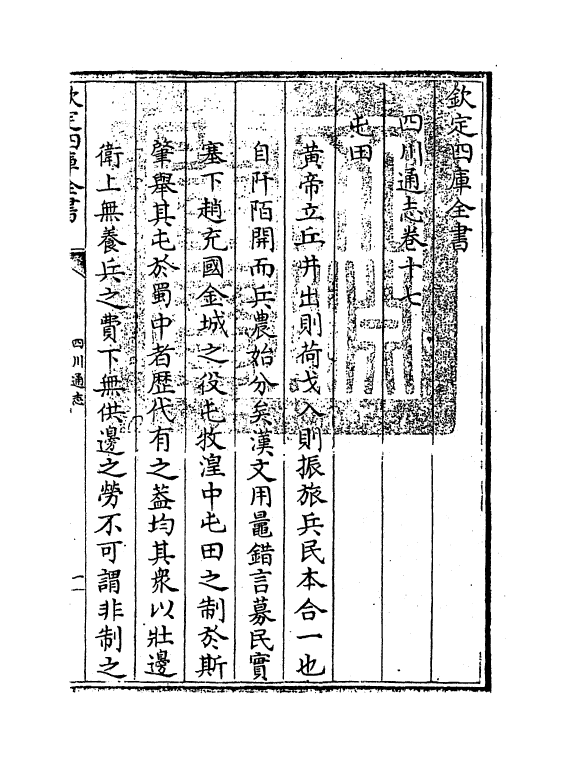 欽定四庫全書
四川通志卷十七
屯田
黃帝立丘井出則荷戈入則振旅兵民本合一也
自阡陌開而兵農始分矣漢文用鼂錯言募民實
塞下趙充國金城之役屯牧湟中屯田之制於斯
肇舉其屯於蜀中者歷代有之葢均其衆以壯邊
衛上無養兵之費下無供邊之勞不可謂非制之
欽定四庫全書
四川通志
一